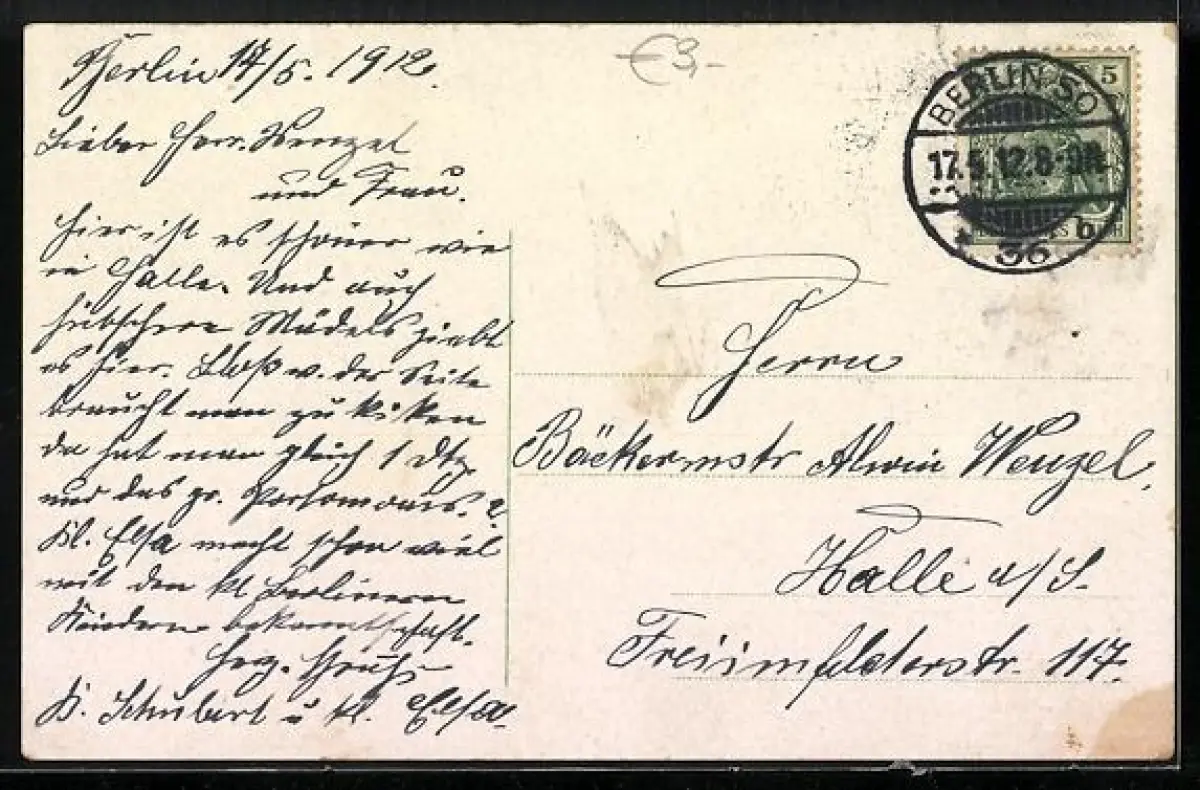 Berlin 17/5. 1912.
Lieber Herr Wenzel
und Frau.
Hier ist es schöner wie
in Halle. Und auch
hübschere Mädels giebt
es hier. Bloß v. der Seite
braucht man zu kiken
da hat man gleich 1 Dtz.
und das gr. 
Kl. Elsa macht schon viel
mit den kl Berlinern
Kindern bekanntschaft.
Herz. Gruß
B. Schubert u kl. Elsa
€3,-
BERLIN SO
17.5.12.8-9N.
* 36 b
5
Herrn
Bäckermstr Alwin Wenzel,
Halle a/S.
Freiimfelderstr. 117.